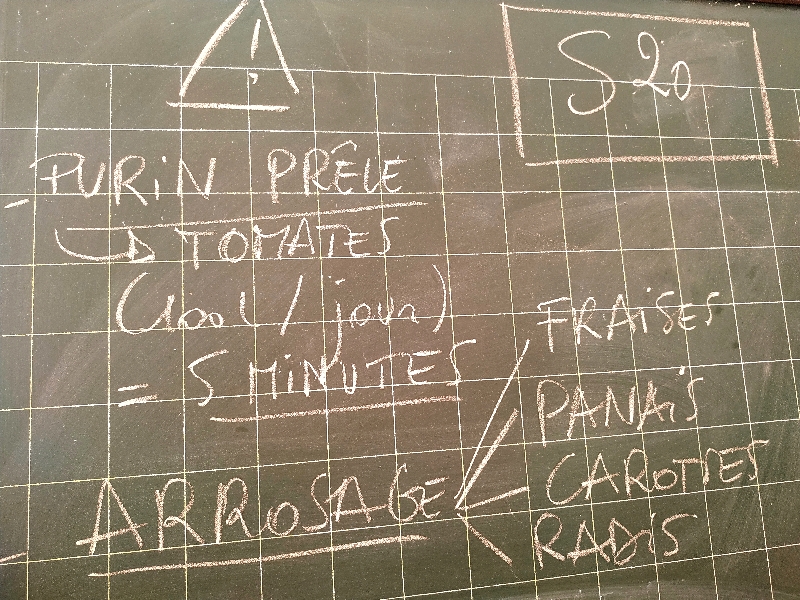 !
S 20
- PURIN PRÊLE
TOMATES
(100L / jour)
= 5 MINUTES
- ARROSAGE
FRAISES
PANAIS
CAROTTES
RADIS